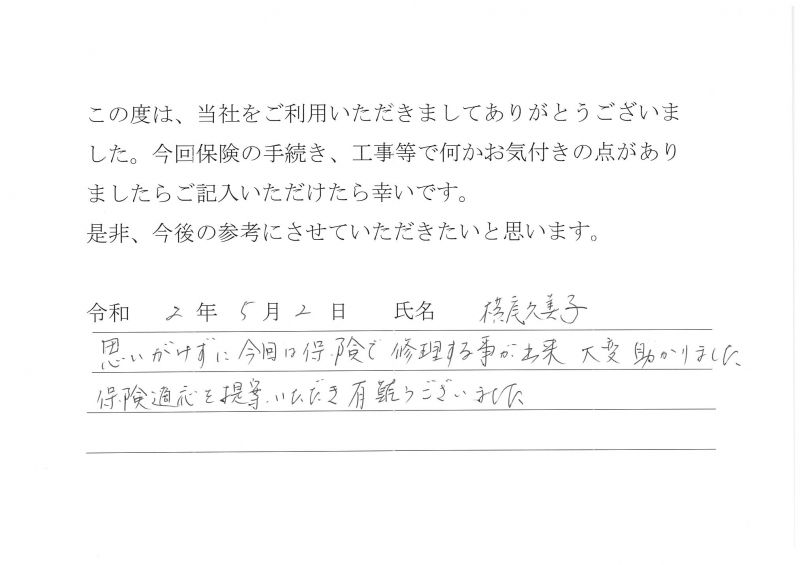 この度は、当社をご利用いただきましてありがとうございま
した。今回保険の手続き、工事等で何かお気付きの点があり
ましたらご記入いただけたら幸いです。
是非、今後の参考にさせていただきたいと思います。
令和 2 年 5 月 2 日 氏名 横尾久美子
思いがけずに今回は保険で修理する事が出来 大変助かりました
保険適応を提案いただき有難うございました